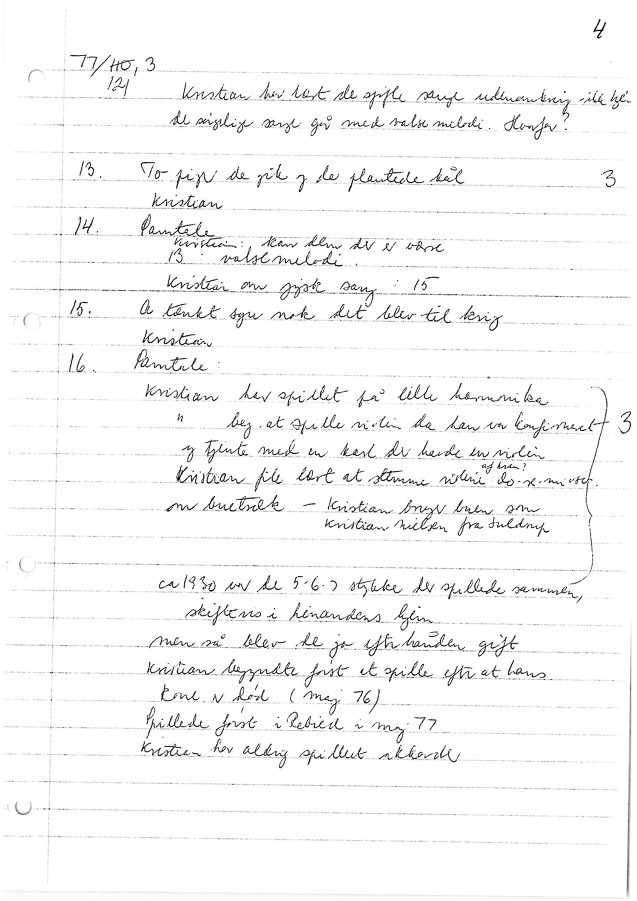 4
77/HO, 3
121
Kristian har lært de spille sange udenadering - ikke
de sørgelige sange går med valse melodi. Hvorfor?
13. To piger de gik og de plantede kål 3
Kristian
14. Samtale
Kristian: kan den der er værre
13 : valsemelodi.
Kristian om jysk sang : 15
15. A tænkt sgu nok det blev til krig
Kristian
16. Samtale:
Kristian har spillet på lille harmonika
" beg. at spille violin da han va konfirmeret 3
og tjente med en karl der havde en violin
af hvem?
Kristian fik lært at stemme violine do-re-mi
om buetræk - Kristian bruger buen som
Kristian Nielsen fra Suldrup
ca 1930 var de 5-6-7 stykke der spillede sammen,
skiftevis i hinandens hjem
men så blev de jo efterhånden gift
Kristian begyndte først at spille efter at hans
kone er død (maj 76)
Spillede først i Rebild i maj 77
Kristian har aldrig spillet akkorde